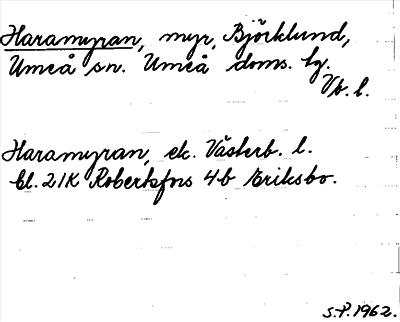 Haramyran, myr, Björklund,
Umeå sn. Umeå doms. tg.
Vb. l.
Haramyran, ek. Västerb. l.
bl. 21K Robertsfors 4b Eriksbo.
S.P. 1962.